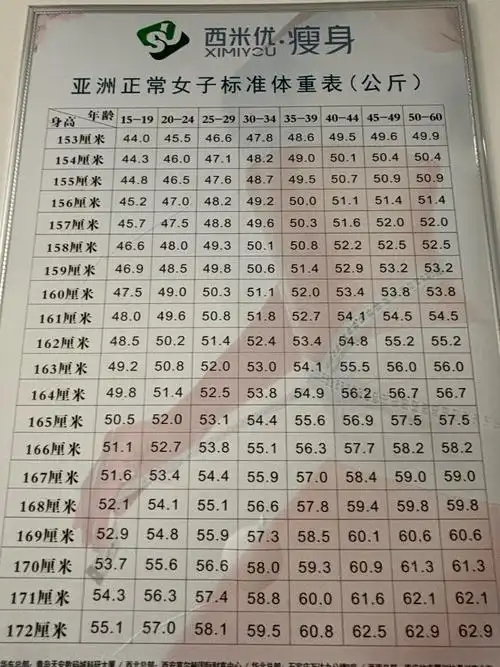 西米优·瘦身
XIMIYOU
亚洲正常女子标准体重表(公斤)
身高 年龄 15-19 20-24 25-29 30-34 35-39 40-44 45-49 50-60
153厘米 44.0 45.5 46.6 47.8 48.6 49.5 49.6 49.9
154厘米 44.3 46.0 47.1 48.2 49.0 50.1 50.4 50.4
155厘米 44.8 46.5 47.6 48.7 49.5 50.7 50.9 50.9
156厘米 45.2 47.0 48.2 49.2 50.0 51.1 51.4 51.4
157厘米 45.7 47.5 48.8 49.6 50.3 51.6 52.0 52.0
158厘米 46.6 48.0 49.3 50.1 50.8 52.2 52.5 52.5
159厘米 46.9 48.5 49.8 50.6 51.4 52.9 53.2 53.2
160厘米 47.5 49.0 50.3 51.1 52.0 53.4 53.8 53.8
161厘米 48.0 49.6 50.8 51.8 52.7 54.1 54.5 54.5
162厘米 48.5 50.2 51.4 52.4 53.4 54.8 55.2 55.2
163厘米 49.2 50.8 52.0 53.0 54.1 55.5 56.0 56.0
164厘米 49.8 51.4 52.5 53.8 54.9 56.2 56.7 56.7
165厘米 50.5 52.0 53.1 54.4 55.6 56.9 57.5 57.5
166厘米 51.1 52.7 53.8 55.1 56.3 57.7 58.2 58.2
167厘米 51.6 53.4 54.4 55.9 57.0 58.4 59.0 59.0
168厘米 52.1 54.1 55.1 56.6 57.8 59.4 59.8 59.8
169厘米 52.9 54.8 55.9 57.3 58.5 60.1 60.6 60.6
170厘米 53.7 55.6 56.6 58.0 59.3 60.9 61.3 61.3
171厘米 54.3 56.3 57.4 58.8 60.0 61.6 62.1 62.1
172厘米 55.1 57.0 58.1 59.5 60.8 62.4 62.9 62.9